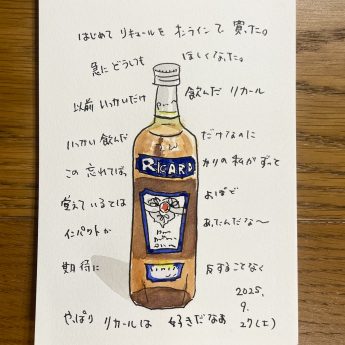 はじめて リキュールを オンラインで 買った。
急に どうしても ほしくなった。
以前 いっかいだけ 飲んだ リカール
いっかい 飲んだ だけなのに
この 忘れてばっかりの私がずっと
RICARD
覚えているとは よほど
インパクトが あったんだな〜
期待に 反することなく
やっぱり リカールは 好きだなあ
2025.
9.
27(土)